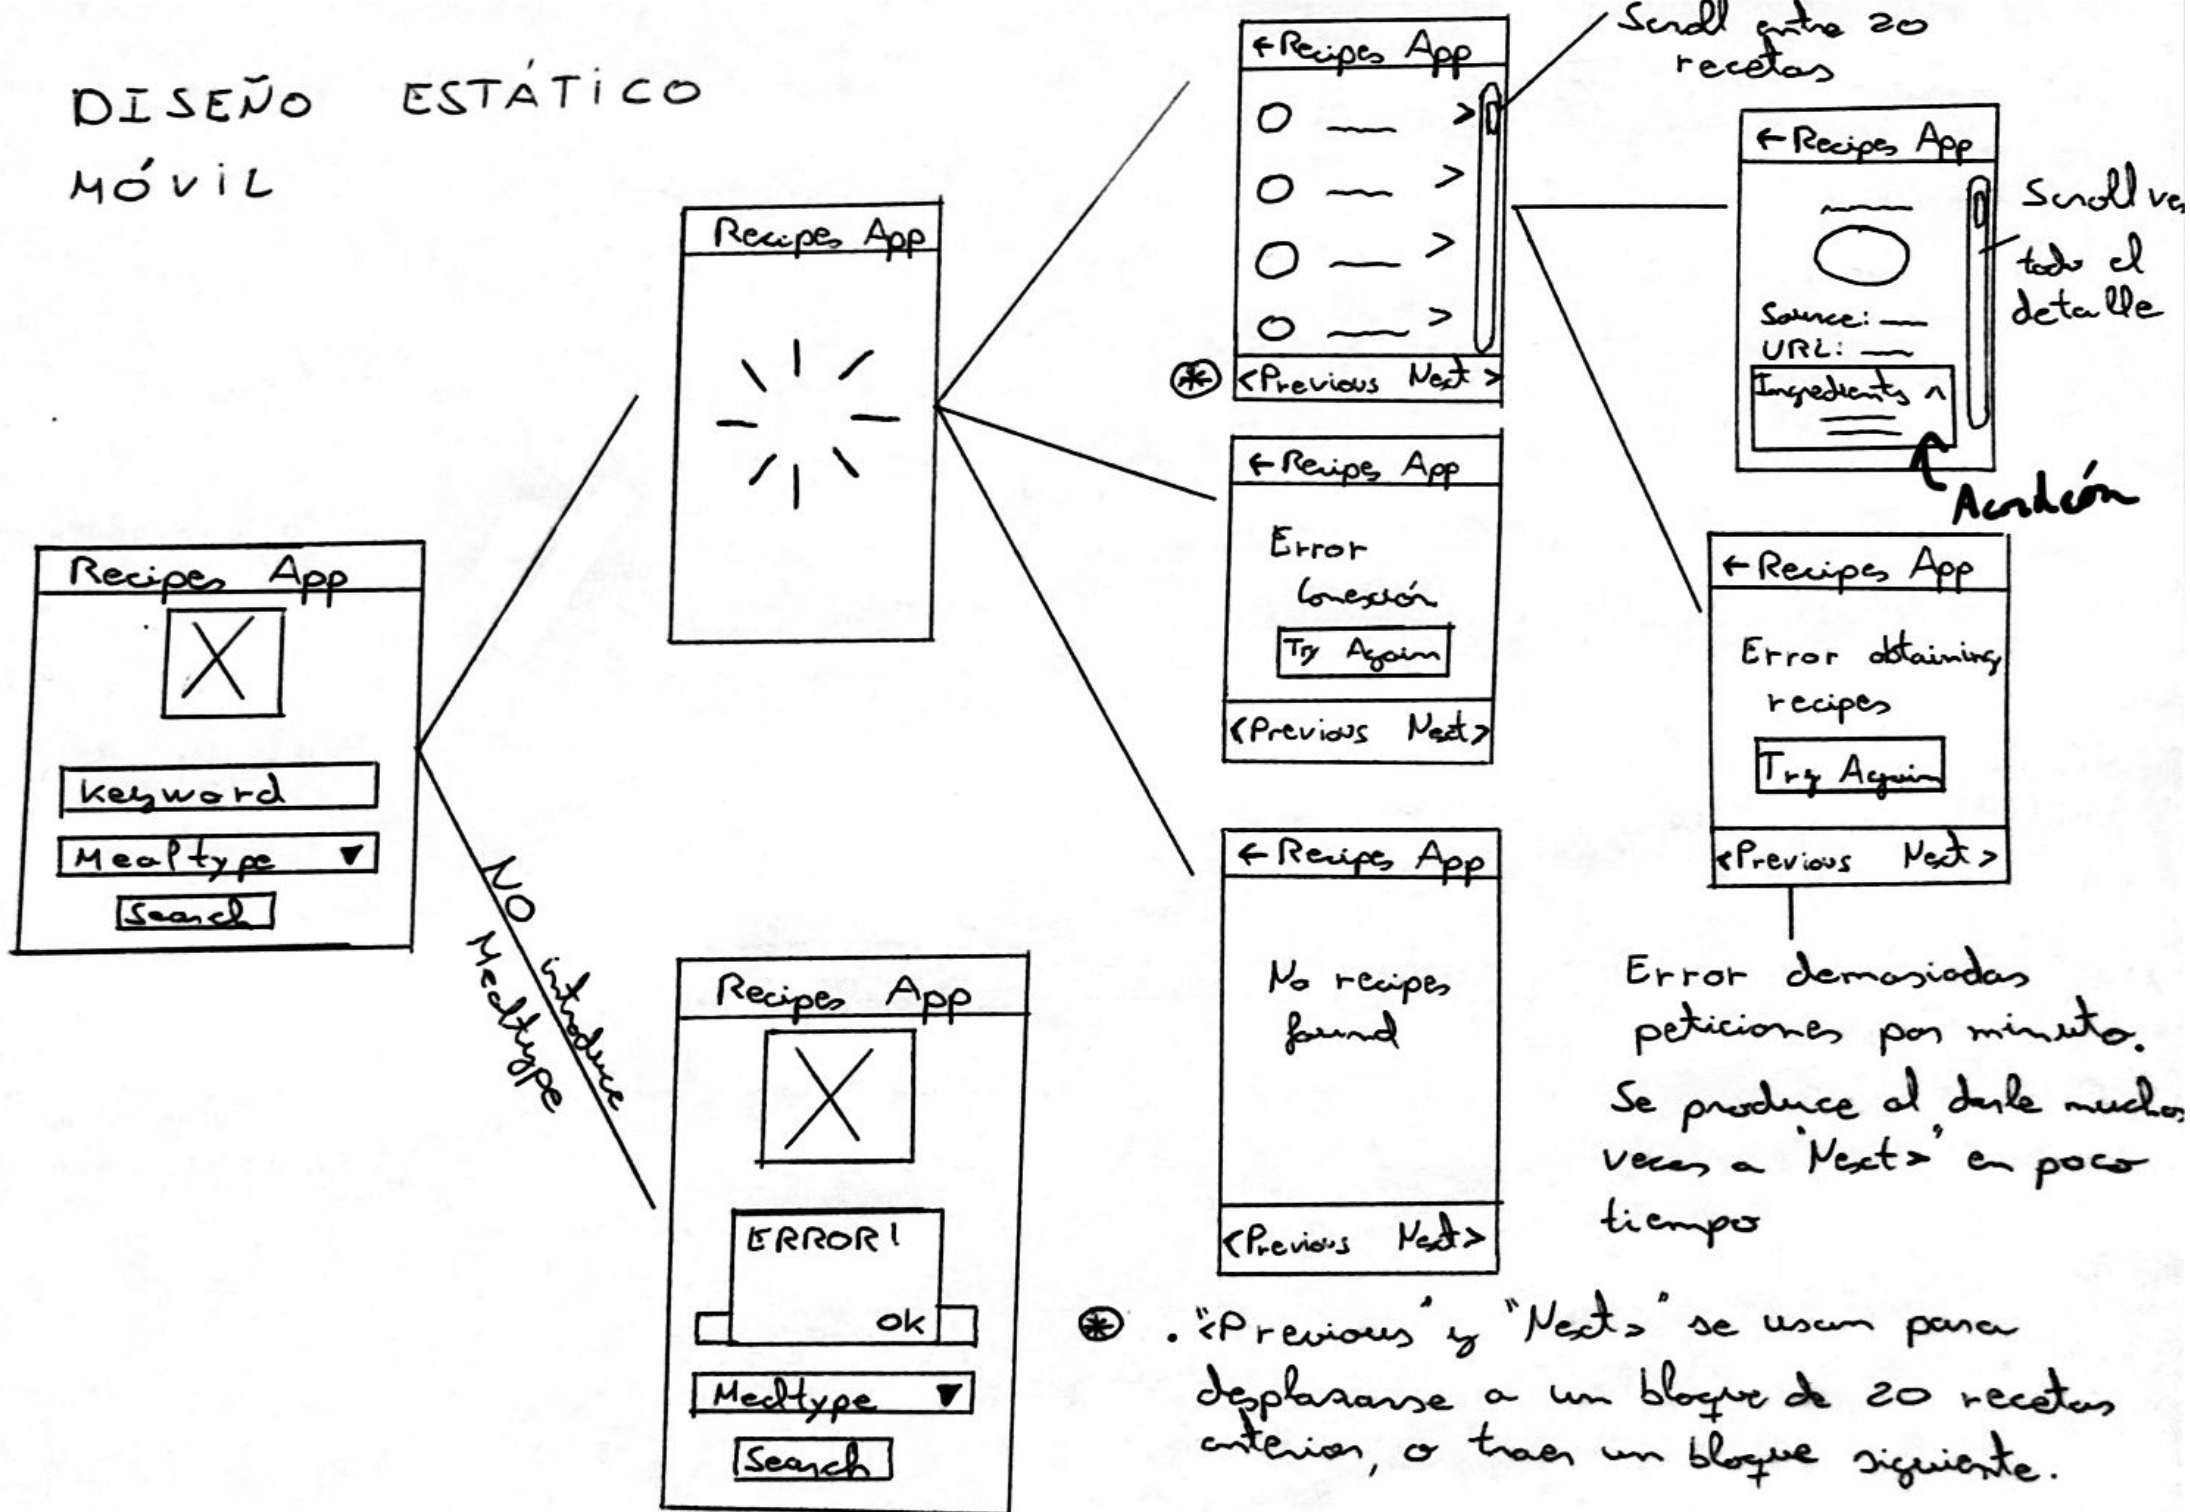 DISEÑO ESTÁTICO
MÓVIL
Recipes App
Keyword
Mealtype ▼
Search
NO introduce
Mealtype
Recipes App
Recipes App
ERROR!
OK
Mealtype ▼
Search
Scroll entre 20
recetas
← Recipes App
>
>
>
>
⊛ <Previous Next >
← Recipes App
Error
Conexión
Try Again
<Previous Next>
← Recipes App
No recipes
found
<Previous Next>
← Recipes App
Source:
URL:
Ingredients ^
Scroll
todo el
detalle
Acordeón
← Recipes App
Error obtaining
recipes
Try Again
<Previous Next>
Error demasiadas
peticiones por minuto.
Se produce al darle muchas
veces a "Next>" en poco
tiempo
⊛ . "<Previous" y "Next>" se usan para
desplazarse a un bloque de 20 recetas
anterior, o traer un bloque siguiente.